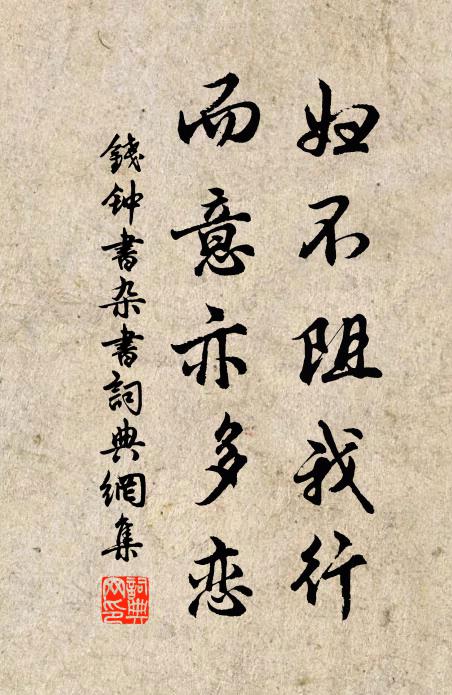 妇不阻我行
而意亦多恋
錢钟書杂書詞典網集
詞典网印